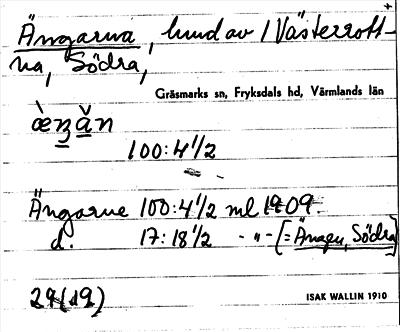 Ängarna, hmd av 1 Västerrott-
na, Södra,
Gräsmarks sn, Fryksdals hd, Värmlands län
100:4 1/2
Ängarne 100:4 1/2 ml 1909.
d. 17:18 1/2 - " - (= Ängen, Södra)
ISAK WALLIN 1910